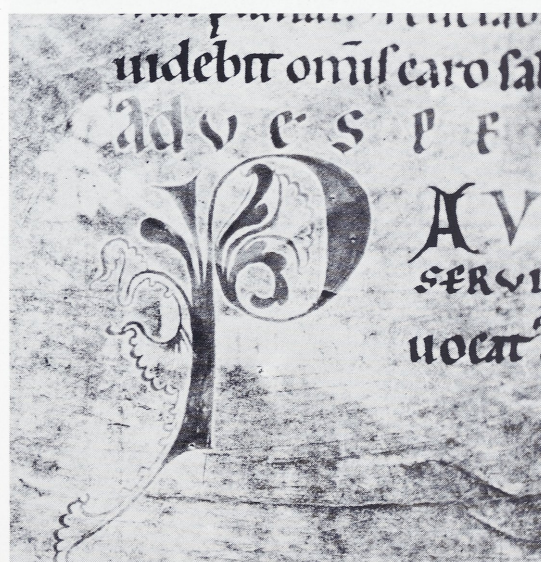 uidebit om̄iſ caro ſal
ad veSPE
PAV
SERVI
uocat